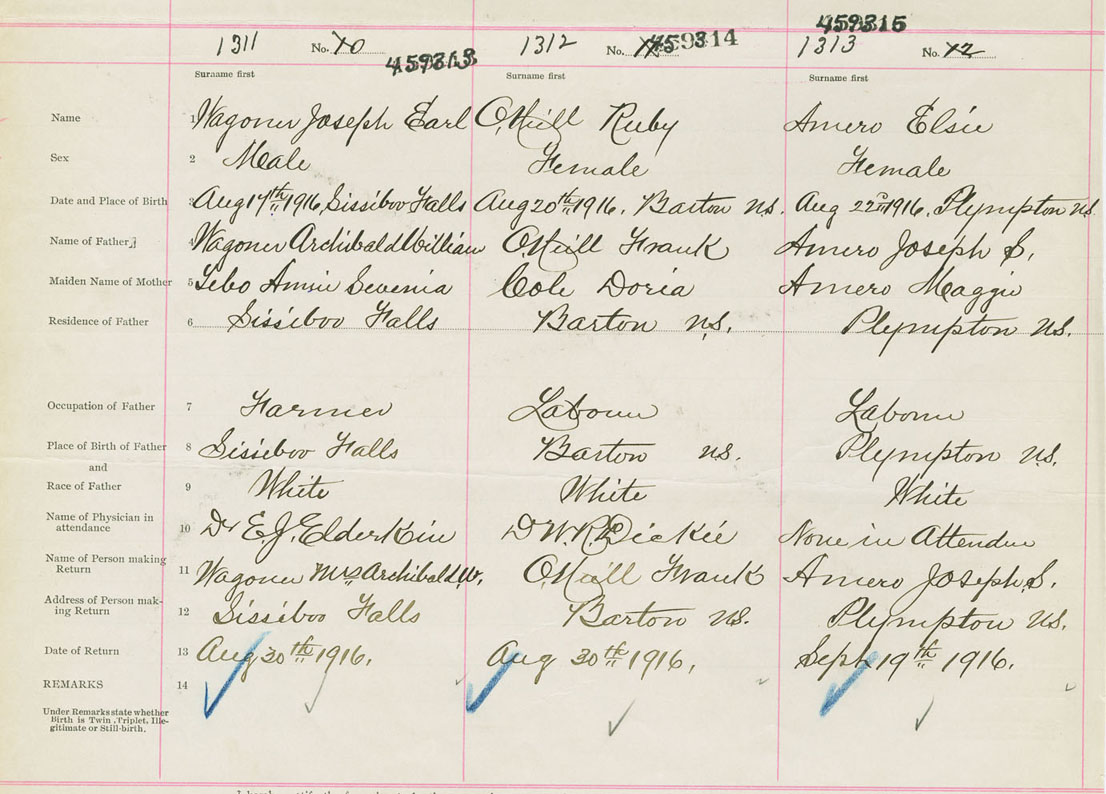 459315
1311 No. 10 1312 No. 1313 No. 12
459313 459314
Surname first Surname first Surname first
Name 1 Wagoner Joseph Earl O'Neill Ruby Amero Elsie
Sex 2 Male Female Female
Date and Place of Birth 3 Aug 17th 1916, Sissiboo Falls Aug 20th 1916. Barton N.S. Aug 22nd 1916. Plympton N.S.
Name of Father 4 Wagoner Archibald William O'Neill Frank Amero Joseph S.
Maiden Name of Mother 5 Annie Sevenia Cole Doria Amero Maggie
Residence of Father 6 Sissiboo Falls Barton N.S. Plympton N.S.
Occupation of Father 7 Farmer Labourer Labourer
Place of Birth of Father 8 Sissiboo Falls Barton N.S. Plympton N.S.
and
Race of Father 9 White White White
Name of Physician in
attendance 10 Dr E.J. Elderkin D W.R. Dickie None in Attendce
Name of Person making
Return 11 Wagoner Mrs Archibald W. O'Neill Frank Amero Joseph S.
Address of Person mak-
ing Return 12 Sissiboo Falls Barton N.S. Plympton N.S.
Date of Return 13 Aug 30th 1916. Aug 30th 1916. Sept 19th 1916.
REMARKS 14
Under Remarks state whether
Birth is Twin, Triplet, Ille-
gitimate or Still-birth.